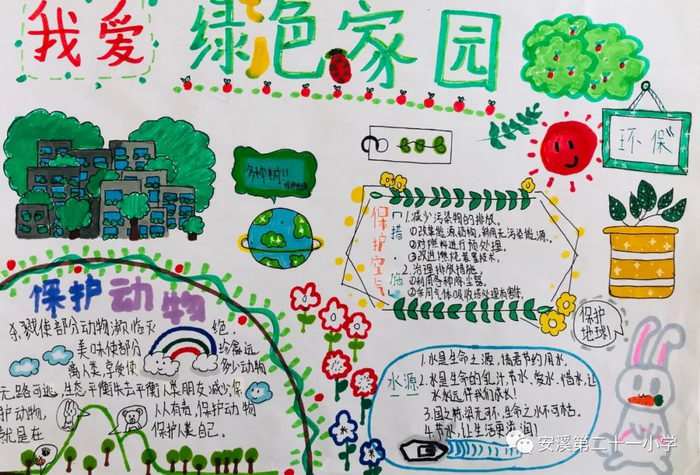 我爱
绿色家园
环保
多种树!!
保护空气
措施
1.减少污染物的排放。
①改革能源结构,利用无污染能源。
②对燃料进行预处理。
③改进燃烧装置技术。
2.治理排放措施
①利用各种除尘器。
保护动物
杀戮使部分动物濒临灭绝.
美味使部分
离人类,享受使
多少动物
无路可逃
生态平衡失去平衡人类朋友减少
护动物,
人人有责,保护动物
就是在
保护人类自己.
保护地球
水源
1.水是生命之源,请君节约用水。
2.水是生命的乳汁,节水、爱水、惜水,让
水永远伴我们成长!
3.国之脉,染无环,生命之水不可枯。
4.节水,让生活更滋润!
安溪第二十一小学